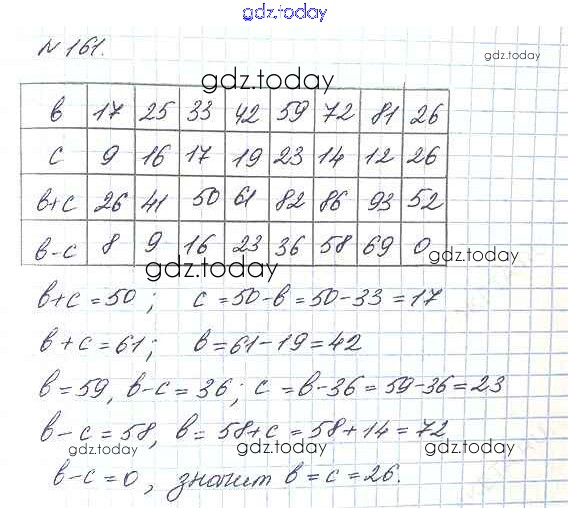 gdz.today
№ 161.
gdz.today
в 17 25 33 42 59 72 81 26
с 9 16 17 19 23 14 12 26
в+с 26 41 50 61 82 86 93 52
в-с 8 9 16 23 36 58 69 0
gdz.today
gdz.today
в+с=50; с=50-в=50-33=17
в+с=61; в=61-19=42
в=59, в-с=36; с=в-36=59-36=23
в-с=58, в=58+с=58+14=72
gdz.today gdz.today gdz.today
в-с=0, значит в=с=26.